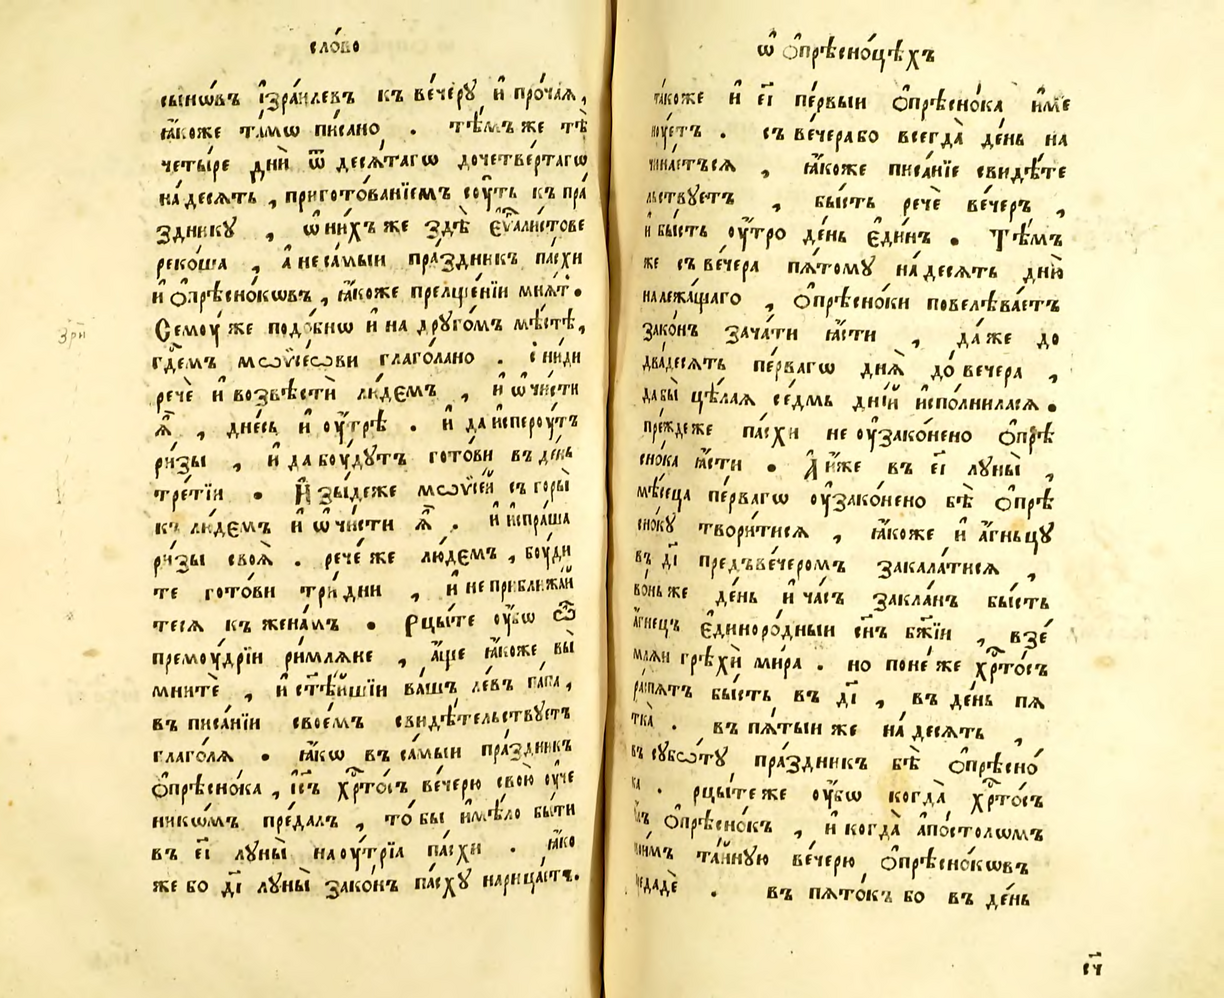 сло́во
сынѡвъ і҆зра́илевъ къ ве́черꙋ и҆ про́чаѧ,
ꙗ҆́коже та́мѡ пи́сано . тѣ́мъже тѣ
четы́ре дни̑ ѿ десѧ́тагѡ дочетве́ртагѡ
на́десѧть , приготова́нїемъ сꙋ́ть къ пра́
зд̾никꙋ , ѡ҆ ни́хъже здѣ̀ є҆ѵⷢ҇али́стове
реко́ша , а҆ не са́мыи пра́здникъ па́схи
и҆ ѻ҆прѣсно́кѡвъ , ꙗ҆́коже преле́щенїи мнѧ́т .
Семоу́ же подо́бнѡ и҆ на дрꙋго́мъ мѣ́стѣ ,
гдⷭ҇емъ мѡѷсе́ѡви глаго́лано . сни́ди
речѐ и҆ возвѣстѝ лю́демъ , и҆ ѡ҆чи́сти
ѧ҆̀ , дне́сь и҆ оу҆́трѣ . и҆ да и҆сперꙋ́тъ
ри́зы , и҆ да бꙋ́дꙋтъ гото́ви въ де́нь
тре́тїи . И҆ зы́деже мѡѷсе́й съ горы̀
къ лю́демъ и҆ ѡ҆чи́сти ѧ҆̀ . и҆ и҆спра́ша
ри́зы своѧ̀ . рече́ же лю́демъ , бꙋ́ди
те гото́ви трѝ дни , и҆ не приближа́й
тесѧ къ жена́мъ . Рцы́те оу҆́бѡ ѽ
премꙋ́дрїи ри́млѧне , а҆́ще ꙗ҆́коже вы̀
мнитѐ , и҆ ст҃ѣ́йшїи ва́шъ ле́въ па́па ,
въ писа́нїи свое́мъ свидѣ́тельствꙋетъ
глаго́лѧ . ꙗ҆́кѡ въ са́мыи пра́здникъ
ѻ҆прѣсно́ка , і҆с҃ъ хрⷭ҇то́съ ве́черю свою̀ оу҆че
никѡ́мъ пре́далъ , то̀ бы и҆мѣ́ло бы́ти
въ є҃і лꙋны̀ на оу҆́трїѧ па́схи . ꙗ҆́ко
же бо д҃і лꙋны̀ зако́нъ па́схꙋ нарица́етъ .
ѡ҆ ѻ҆прѣсно́цѣхъ
та́коже и҆ є҃і пе́рвыи ѻ҆прѣсно́ка и҆ме
нꙋ́етъ . съ ве́чера бо всегда̀ де́нь на
чина́етъсѧ , ꙗ҆́коже писа́нїе свидѣ́те
льствꙋетъ , бы́сть речѐ ве́черъ ,
и҆ бы́сть оу҆́тро де́нь є҆ди́нъ . Тѣ́мъ
же съ ве́чера пѧ́томꙋ на́десѧть дню̀
належа́щаго , ѻ҆прѣсно́ки повелѣва́етъ
зако́нъ зача́ти ꙗ҆́сти , да́же до
два́десѧть пе́рвагѡ днѧ̀ до ве́чера ,
дабы̀ цѣ́лаѧ се́дмь дні́й и҆спо́лниласѧ .
пре́ждеже па́схи не оу҆зако́нено ѻ҆прѣ
снока ꙗ҆́сти . А҆ и҆́же въ є҃і лꙋны̀ ,
мѣ́сеца пе́рвагѡ оу҆зако́нено бѣ̀ ѻ҆прѣ
сно́кꙋ твори́тисѧ , ꙗ҆́коже и҆ а҆́гньцꙋ
въ д҃і предъве́черомъ закала́тисѧ ,
во́ньже де́нь и҆ ча́съ закла́нъ бы́сть
а҆́гнецъ є҆диноро́дныи сн҃ъ бж҃їи , взе́
млѧи грѣхѝ ми́ра . но поне́ же хрⷭ҇то́съ
ра́спѧтъ бы́сть въ д҃і , въ де́нь пѧ
тка̀ . въ пѧ́тыи же на́десѧть ,
въ сꙋбѡ́тꙋ пра́здникъ бѣ̀ ѻ҆прѣсно́
ка . рцы́те же оу҆́бѡ когда̀ хрⷭ҇то́съ
ѻ҆прѣсно́къ , и҆ когда̀ а҆по́столѡмъ
та́йнꙋю ве́черю ѻ҆прѣсно́кѡвъ
. въ пѧто́къ бо въ де́нь
сч҃